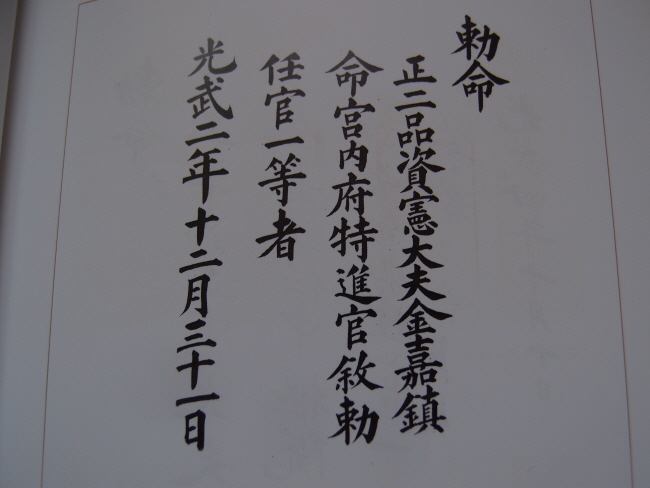 勅命
正二品資憲大夫金嘉鎮
命宮内府特進官敘勅
任官一等者
光武二年十二月三十一日